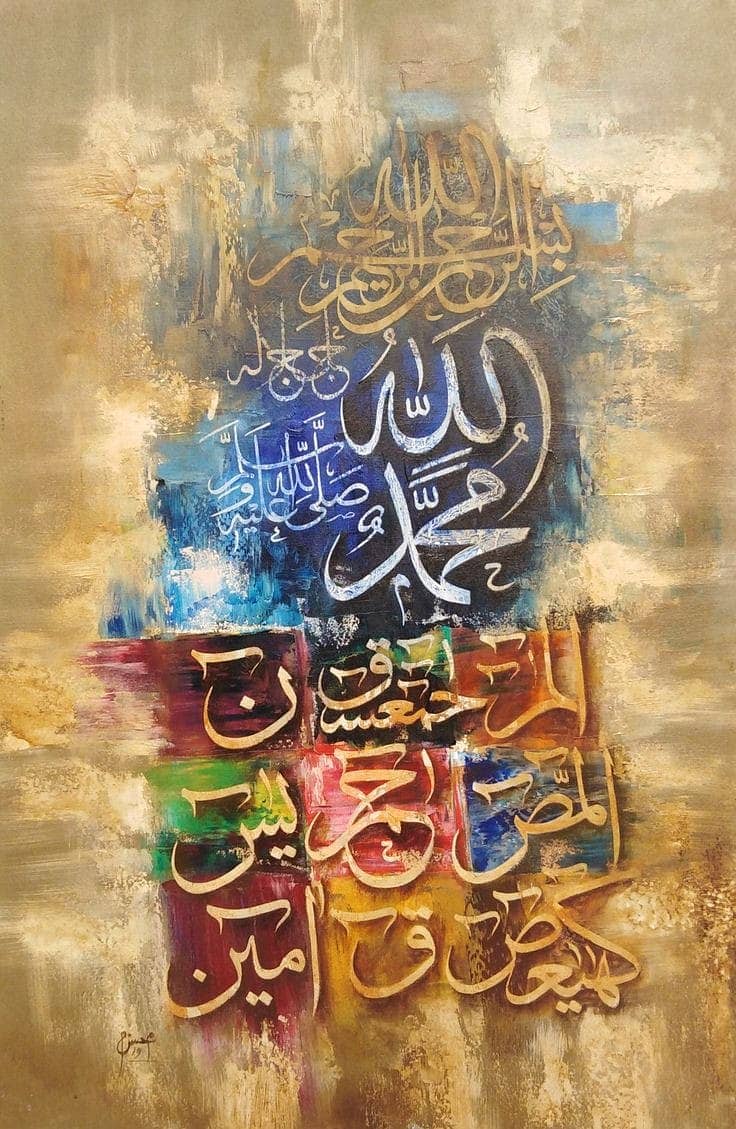 بِسْمِ اللهِ الرَّحْمٰنِ الرَّحِيْمِ
اللهُ جل جلاله
مُحَمَّدٌ صَلَّى اللهُ عَلَيْهِ وَسَلَّمَ
المر حمعسق ن
المّص يس
كهيعص ق امين